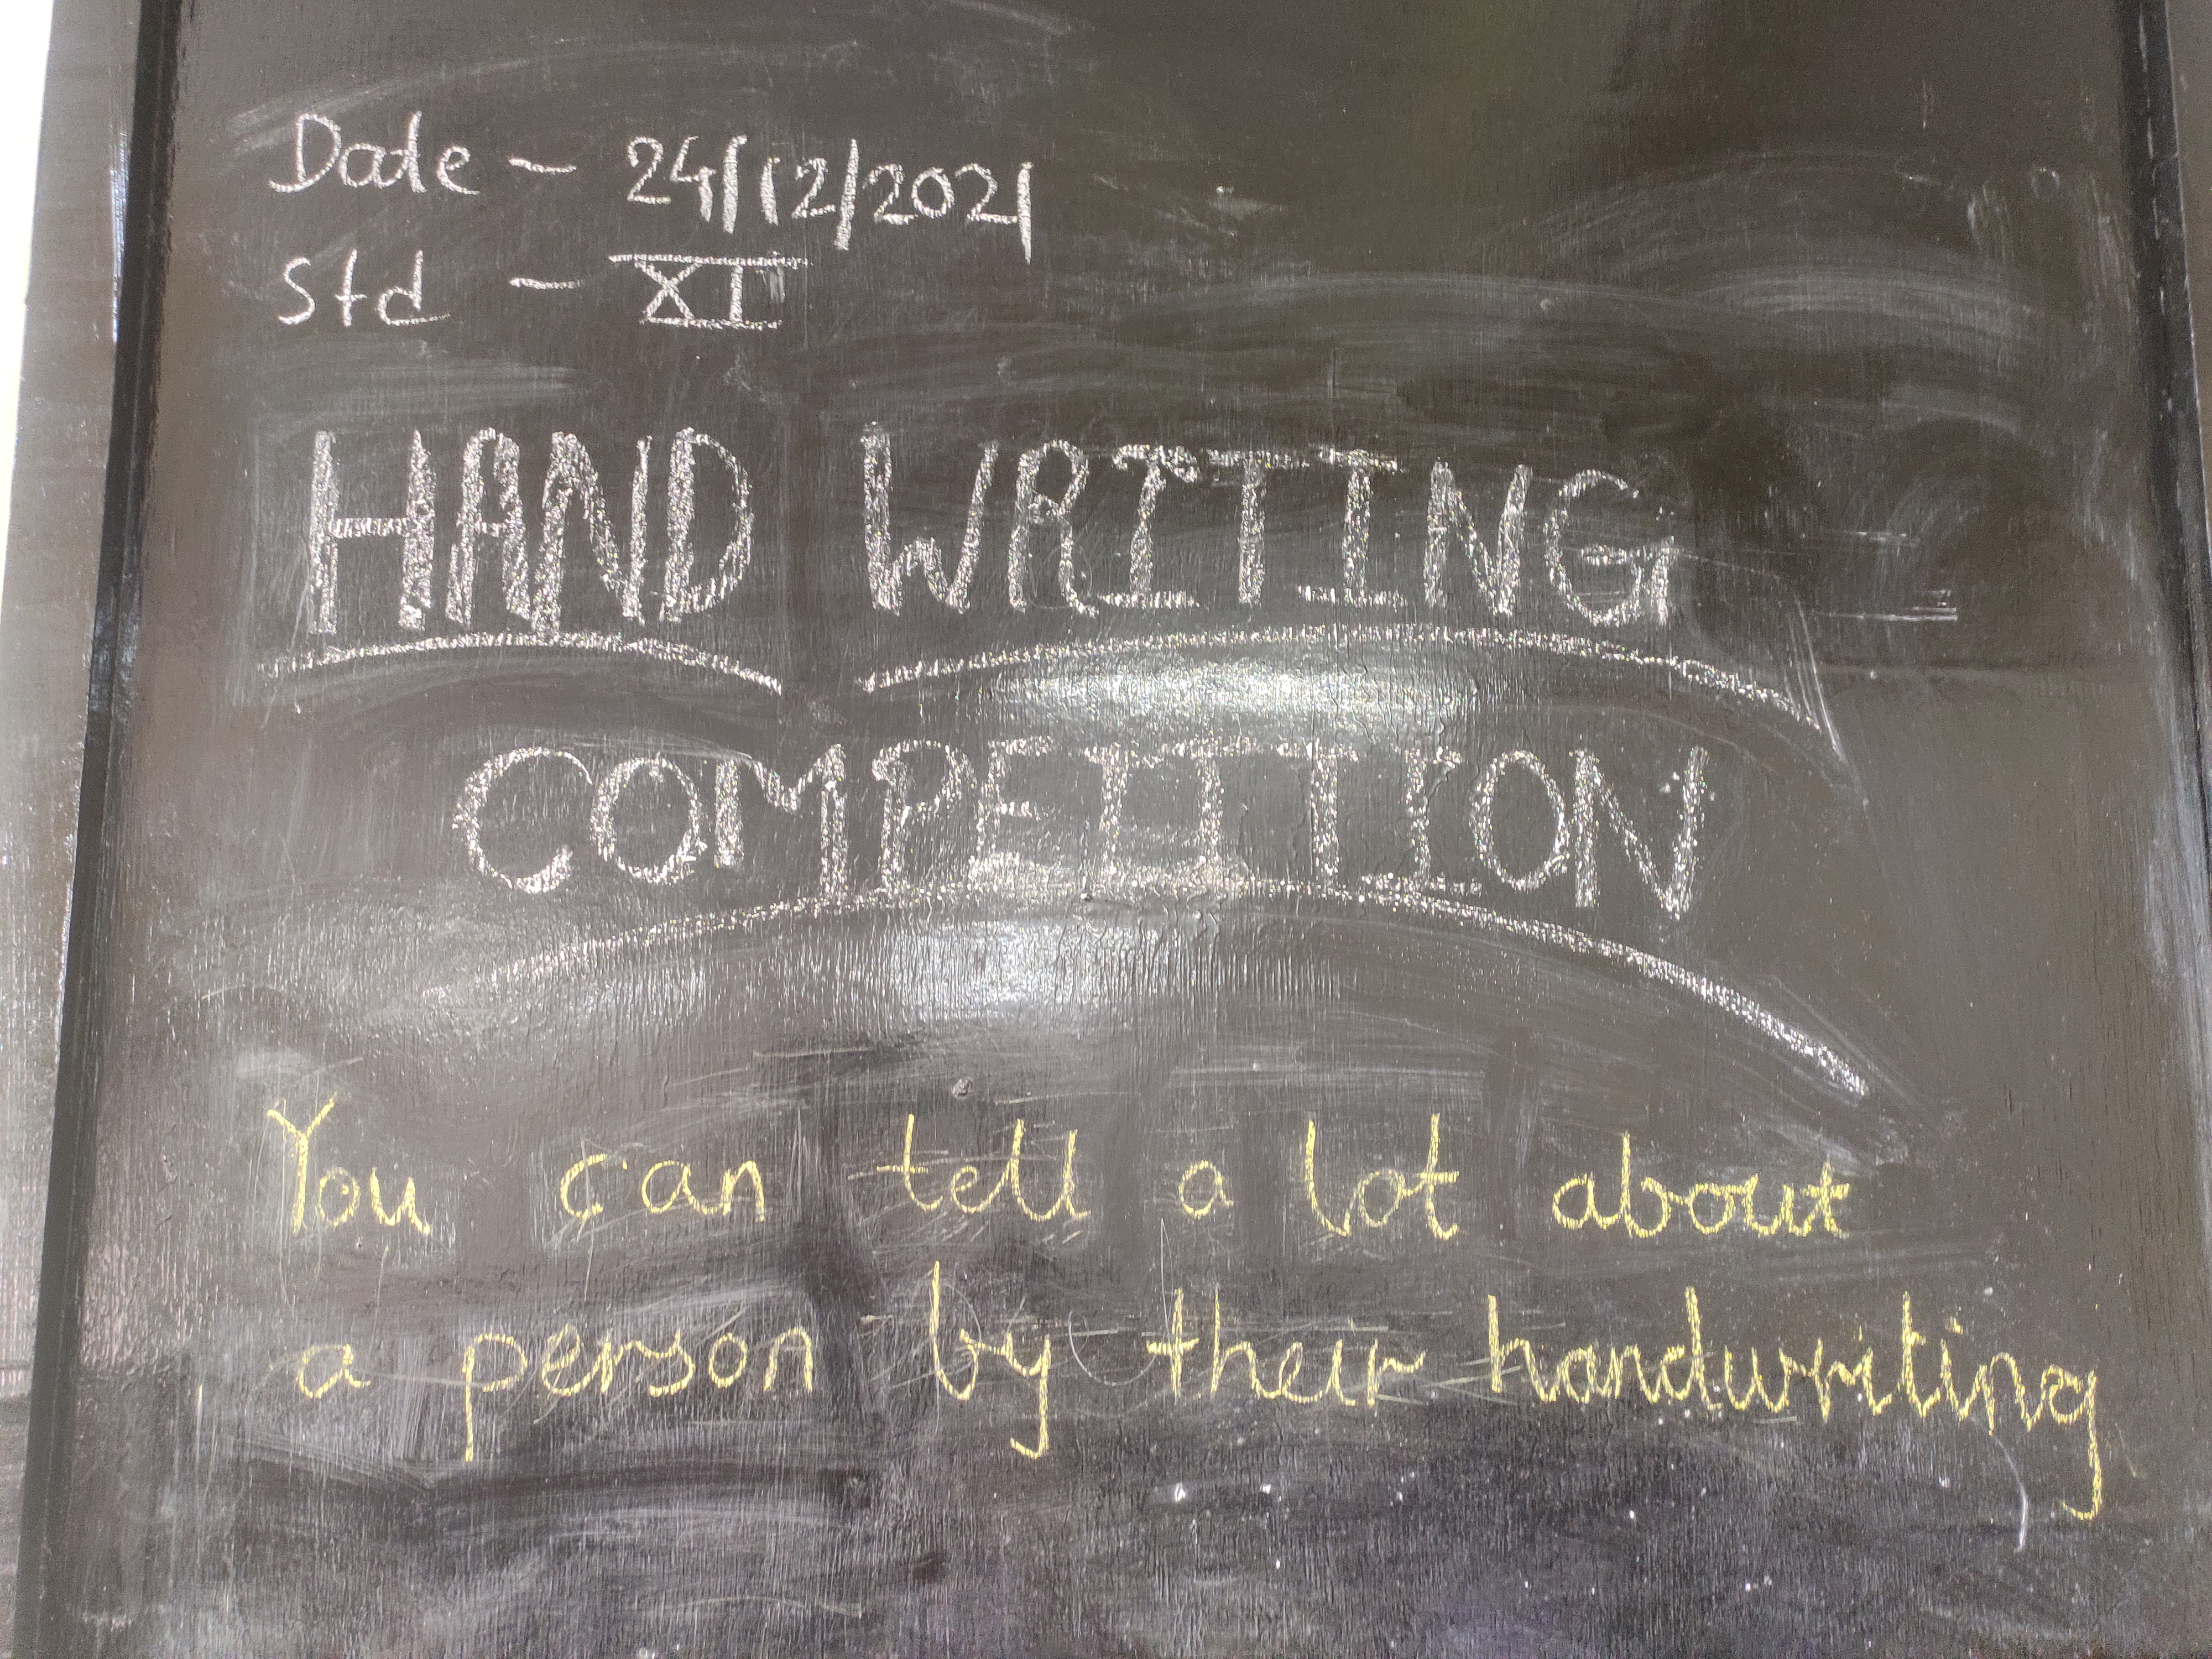 Date - 24/12/2021
Std - XI
HAND WRITING
COMPETITION
You can tell a lot about
a person by their handwriting